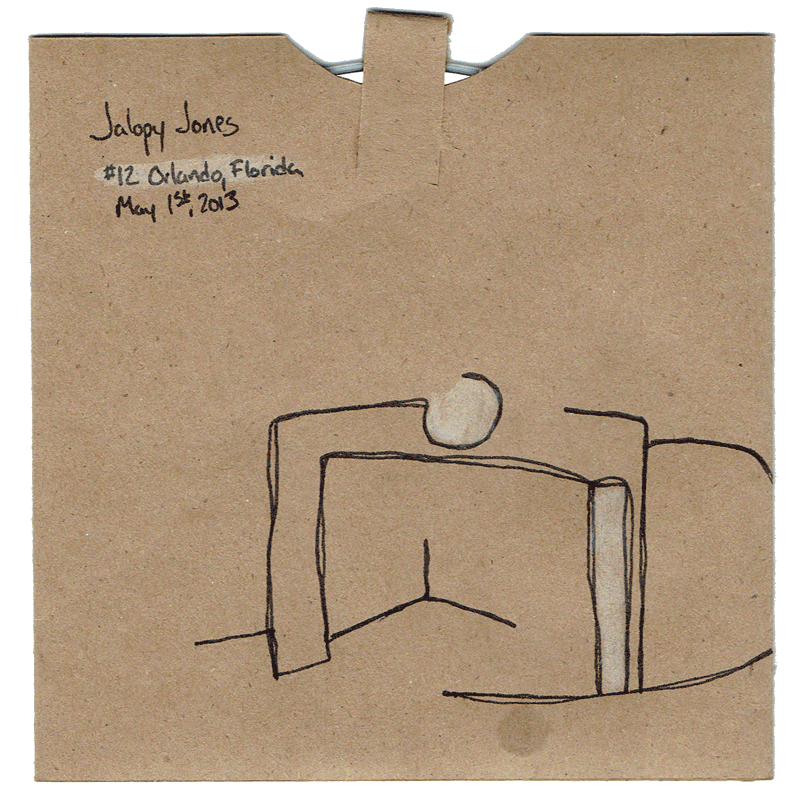 Jalopy Jones
#12 Orlando, Florida
May 1st, 2013